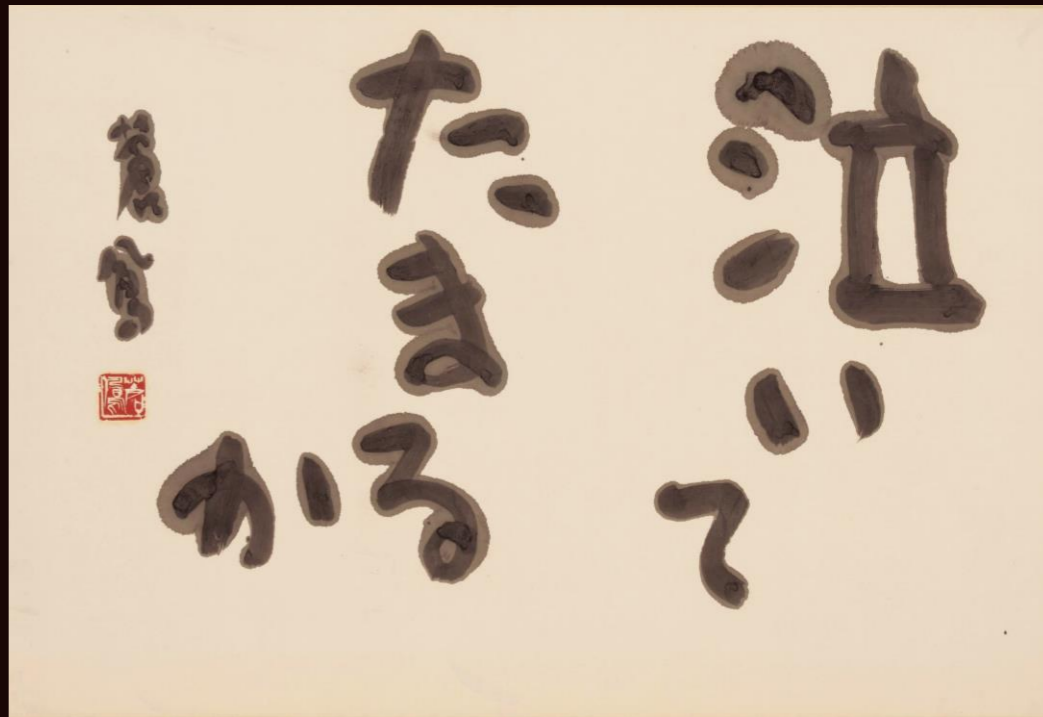 泣いて
たまるか